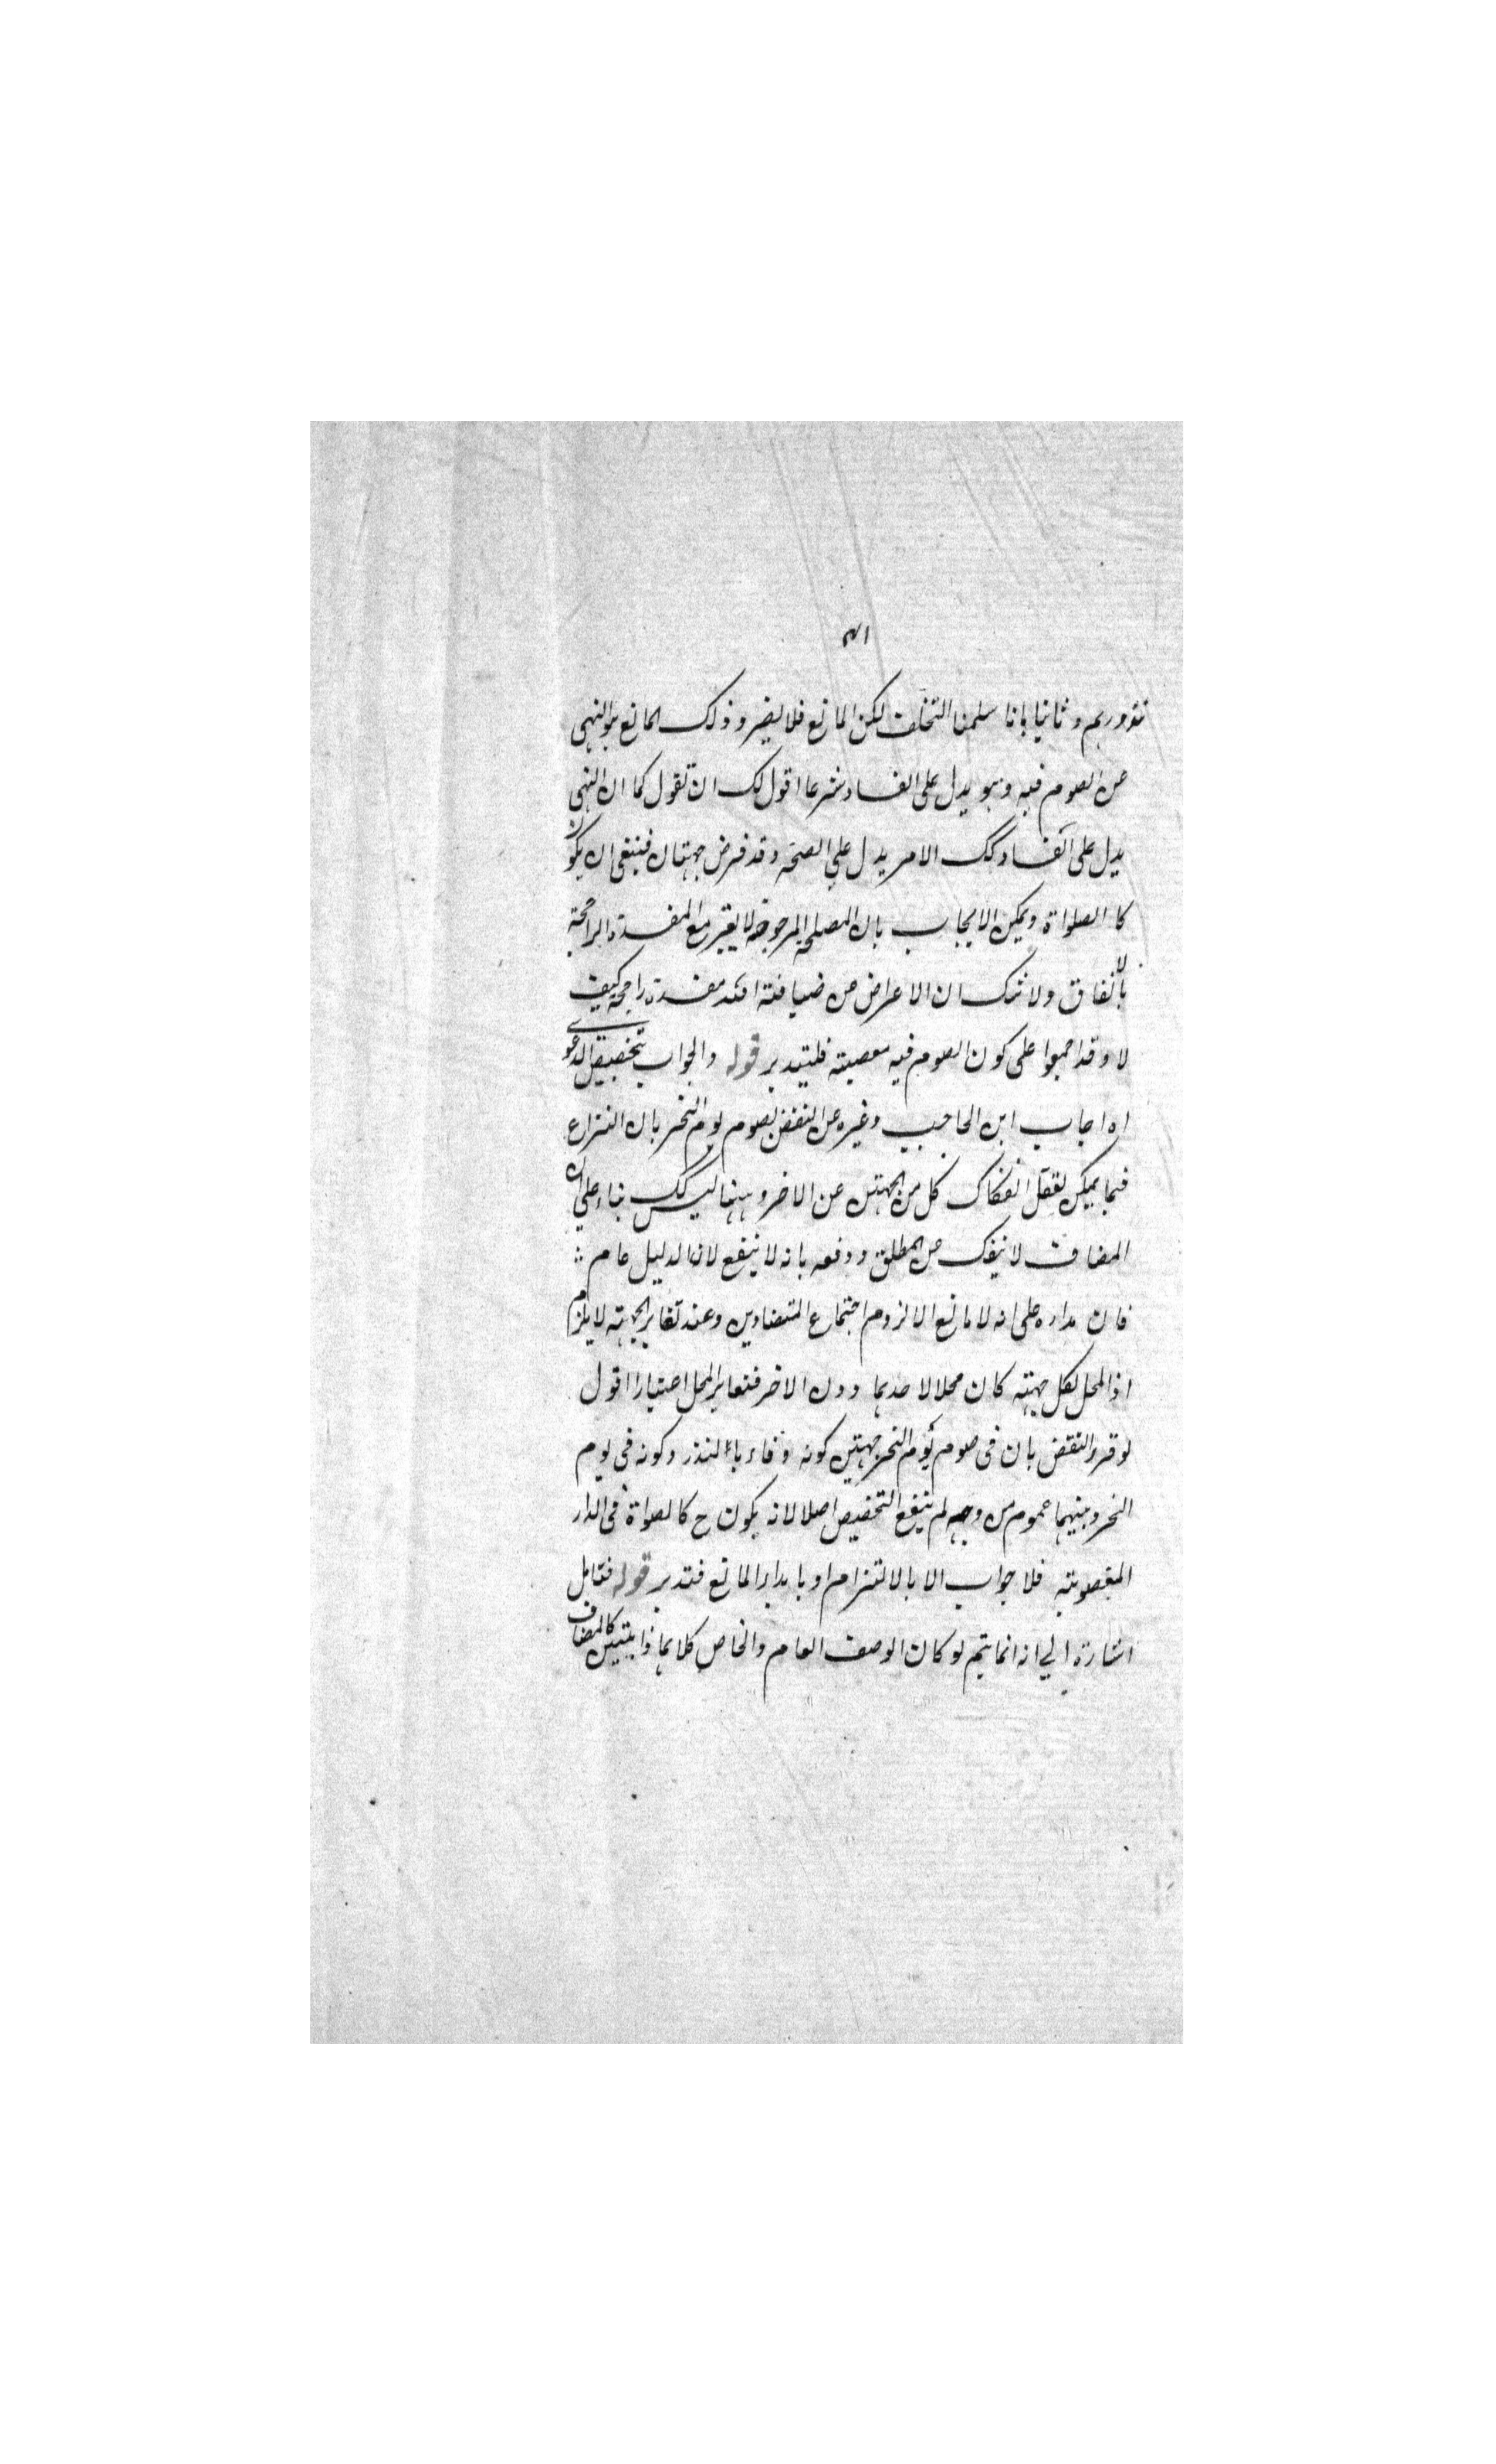 نذورهم وثانيا بانا سلمنا التخلف لكن المانع فلا يضر وذلك المانع هو النهى
عن الصوم فيه وهو يدل على الفساد شرعا اقول لك ان تقول كما ان النهى
يدل على الفساد كك الامر يدل على الصحة وقد فرض جهتان فينبغى ان يكون
كالصلواة ويمكن الايجاب بان المصلحة المرجوحة لا يعتبر مع المفسدة الراجحة
بالاتفاق ولا شك ان الاعراض عن ضيافة الله مفسدة راجحة كيف
لا وقد اجمعوا على كون الصوم فيه معصية فليتدبر قوله والجواب بتخصيص الدعوى
اه اجاب ابن الحاجب وغيره عن النقض بصوم يوم النحر بان النزاع
فيما يمكن تعقل انفكاك كل من الجهتين عن الاخر وههنا ليس كك بناء على ان
المضاف لا ينفك عن المطلق ودفعه بانه لا ينفع لان الدليل عام ؛
فان مداره على انه لا مانع الا لزوم اجتماع المتضادين وعند تغاير الجهة لا يلزم
اذ المحل لكل جهة كان محلا لاحدهما دون الاخر فتغاير المحل اعتبارا اقول
لو قرر النقض بان فى صوم يوم النحر جهتين كونه وفاء بالنذر وكونه فى يوم
النحر وبينهما عموم من وجه لم ينفع التخصيص اصلا لانه يكون ح كالصلواة فى الدار
المغصوبة فلا جواب الا بالالتزام او بابداء المانع فتدبر قوله فتامل
اشارة الي انه انما يتم لو كان الوصف العام والخاص كلاهما ذاتيين كالمضاف